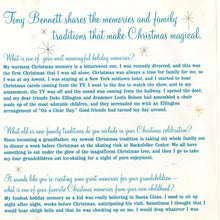 Tony Bennett shares the memories and family
traditions that make Christmas magical.
What is one of your most meaningful holiday memories?
My warmest Christmas memory is a bittersweet one. I was recently divorced, and this was
the first Christmas that I was all alone. Christmas was always a time for family for me, so
I was at my lowest. I was staying at a New York midtown hotel, and I started to hear
Christmas carols coming from the TV. I went to the den to watch the show, and to my
amazement, the TV was off and the sound was coming from the hallway. I opened the door,
and my dear friends Duke Ellington and drummer Louis Bellson had assembled a their
made up of the most adorable children, and they serenaded me with an Ellington
arrangement of "On a Clear Day." Good friends had turned my day around.
What old or new family traditions do you include in your Christmas celebration?
Since becoming a grandfather, my newest Christmas tradition is taking my whole family out
to dinner a week before Christmas at the skating rink at Rockefeller Center. We all have
something to eat under the glow of the magnificent Christmas tree, and then I go to take
my four grandchildren out ice-skating for a night of pure enjoyment.
It sounds like you're creating some great memories for your grandchildren—
what is one of your favorite Christmas memories from your own childhood?
My fondest holiday memory as a kid was really believing in Santa Claus. I used to sit up
night after night, weeks before Christmas, anticipating his visit. Sometimes I thought that I
would hear sleigh bells and that he was checking up on me. I would drop whatever I was